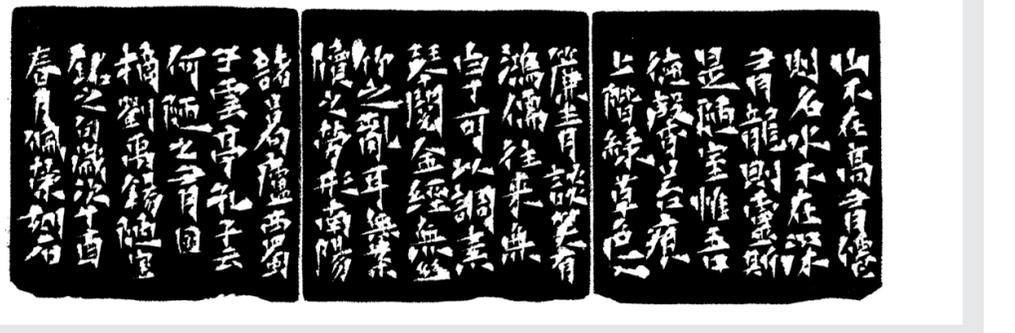 山不在高有僊
則名水不在深
有龍則靈斯
是陋室惟吾
德馨苔痕
上階綠草色入
簾青談笑有
鴻儒往來無
白丁可以調素
琴閱金經無絲
竹之亂耳無案
牘之勞形南陽
諸葛廬西蜀
子雲亭孔子云
何陋之有
摘劉禹錫陋室
銘之句歲次酉
春月刻石